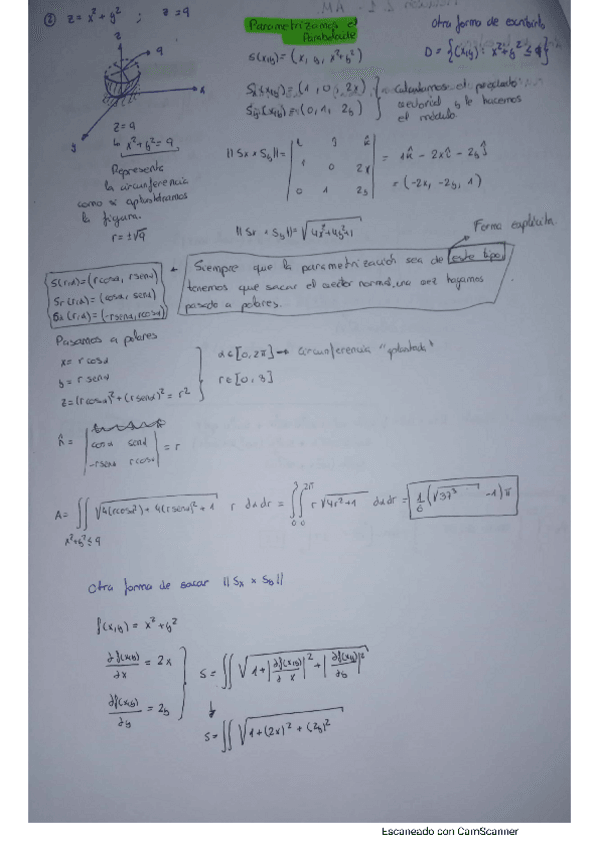 ② z = x² + y² ; z = 9
Parametrizamos el
Paraboloide
Otra forma de escribirlo
S(x,y) = (x, y, x²+y²)
D = {(x,y): x²+y² ≤ 9}
z
9
x
y
Sx(x,y) = (1, 0, 2x)
Sy(x,y) = (0, 1, 2y)
Calculamos el producto
vectorial y le hacemos
el módulo.
z = 9
↳ x²+y² = 9
Representa
la circunferencia
como si aplastáramos
la figura.
r = ±√9
||Sx × Sy|| = | î ĵ k̂ |
| 1 0 2x |
| 0 1 2y |
= 1k̂ - 2xî - 2yĵ
= (-2x, -2y, 1)
||Sx × Sy|| = √4x²+4y²+1
Forma explícita.
S(r,α) = (r cosα, r senα)
Sr(r,α) = (cosα, senα)
Sα(r,α) = (-r senα, r cosα)
Siempre que la parametrización sea de este tipo
tenemos que sacar el vector normal, una vez hayamos
pasado a polares.
Pasamos a polares
x = r cosα
y = r senα
z = (r cosα)² + (r senα)² = r²
α ∈ [0, 2π] → circunferencia "aplastada"
r ∈ [0, 3]
n̂ = | cosα senα |
| -r senα r cosα | = r
A = ∬ √4(r cosα)² + 4(r senα)² + 1 r dα dr = ∫₀³ ∫₀^2π r √4r²+1 dα dr = 1/6 (√37³ - 1) π
x²+y² ≤ 9
Otra forma de sacar ||Sx × Sy||
f(x,y) = x² + y²
∂f(x,y)/∂x = 2x
∂f(x,y)/∂y = 2y
S = ∬ √1 + |∂f(x,y)/∂x|² + |∂f(x,y)/∂y|²
↓
S = ∬ √1 + (2x)² + (2y)²
Escaneado con CamScanner